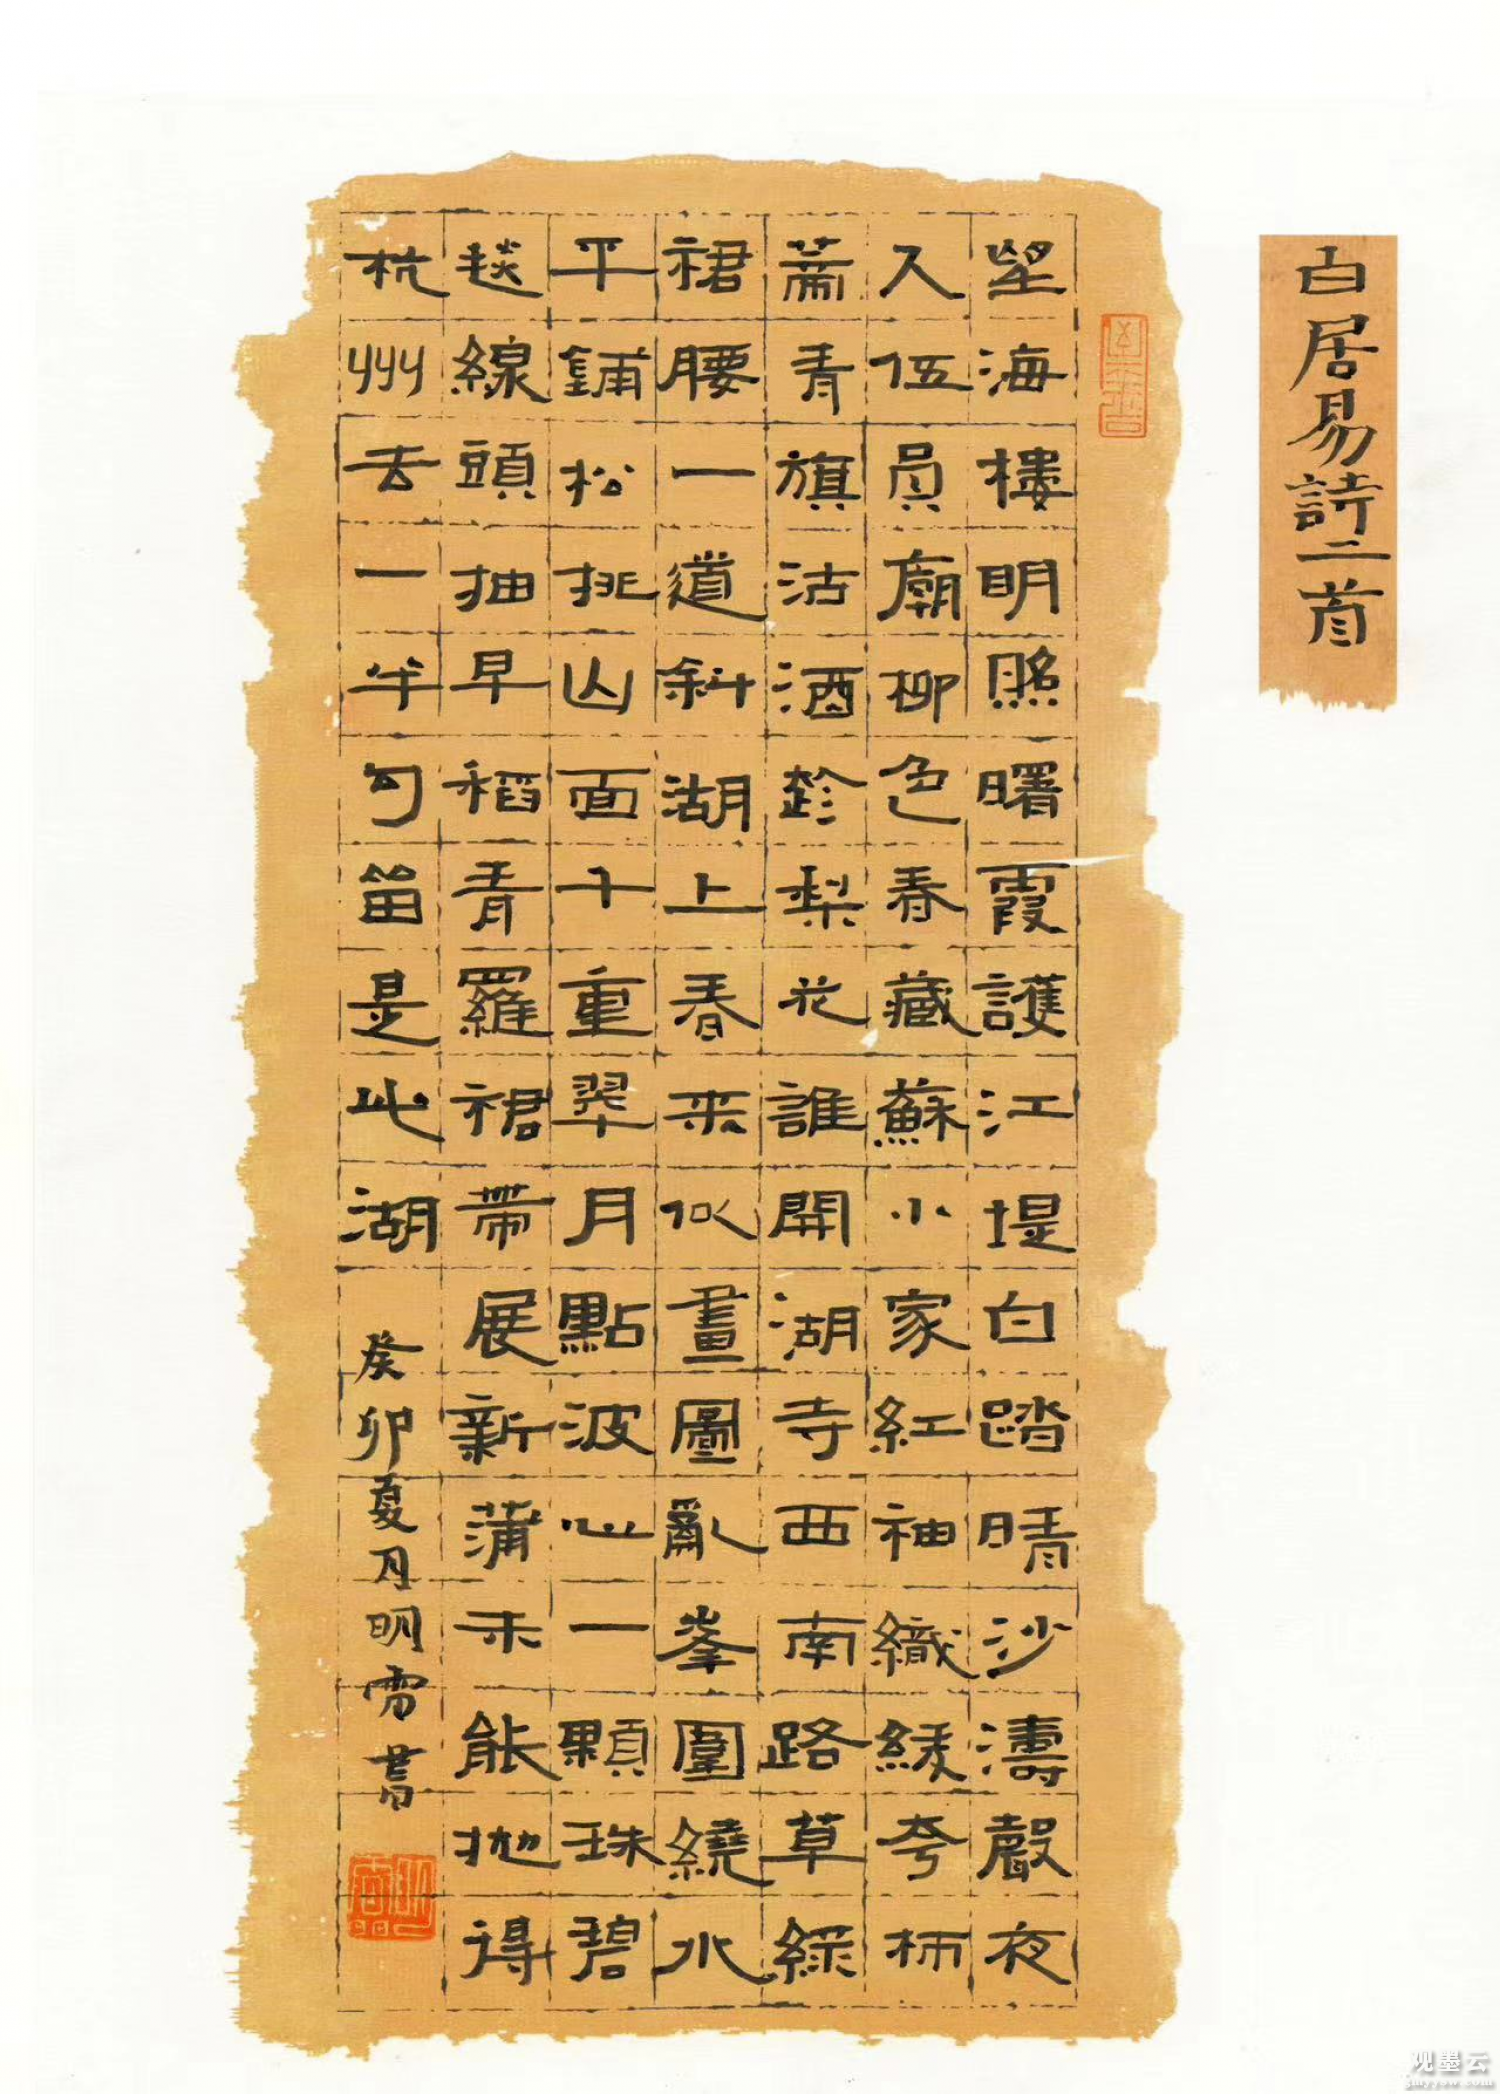 白居易詩二首
望海樓明照曙霞護江堤白踏晴沙濤聲夜
入伍員廟柳色春藏蘇小家紅袖織綾夸柿
蒂青旗沽酒趁梨花誰開湖寺西南路草綠
裙腰一道斜湖上春來似畫圖亂峯圍繞水
平鋪松排山面千重翠月點波心一顆珠碧
毯線頭抽早稻青羅裙帶展新蒲未能拋得
杭州去一半勾留是此湖
癸卯夏月明書
观墨云